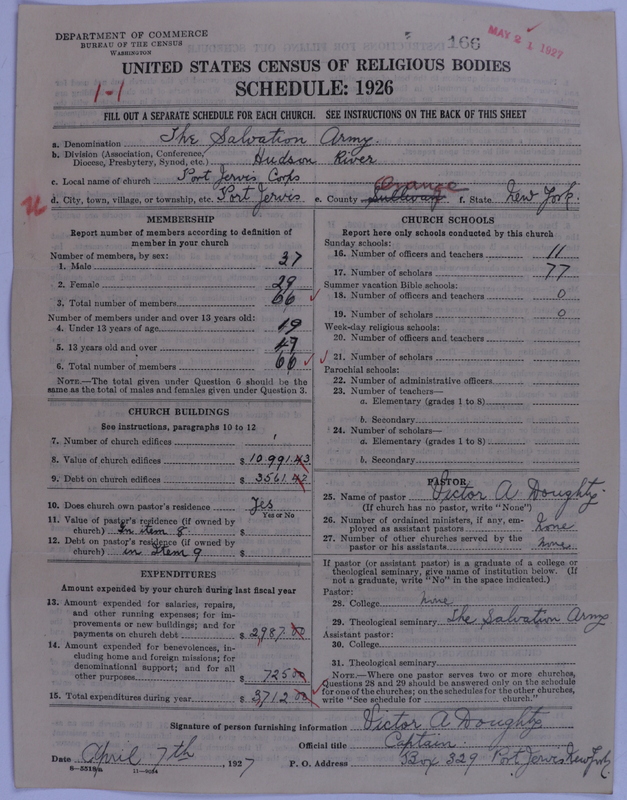 DEPARTMENT OF COMMERCE
BUREAU OF THE CENSUS
WASHINGTON
166
MAY 21 1927
UNITED STATES CENSUS OF RELIGIOUS BODIES
1-1
SCHEDULE: 1926
FILL OUT A SEPARATE SCHEDULE FOR EACH CHURCH. SEE INSTRUCTIONS ON THE BACK OF THIS SHEET
a. Denomination The Salvation Army.
b. Division (Association, Conference, Diocese, Presbytery, Synod, etc.) Hudson River
c. Local name of church Port Jervis Corps
d. City, town, village, or township, etc. Port Jervis e. County Sullivan Orange f. State New York.
MEMBERSHIP
Report number of members according to definition of
member in your church
Number of members, by sex:
1. Male 37
2. Female 29
3. Total number of members 66
Number of members under and over 13 years old:
4. Under 13 years of age 19
5. 13 years old and over 47
6. Total number of members 66
NOTE.—The total given under Question 6 should be the
same as the total of males and females given under Question 3.
CHURCH BUILDINGS
See instructions, paragraphs 10 to 12
7. Number of church edifices 1
8. Value of church edifices $ 10991.43
9. Debt on church edifices $ 3561.42
10. Does church own pastor's residence Yes
Yes or No
11. Value of pastor's residence (if owned by
church) In item 8 $
12. Debt on pastor's residence (if owned by
church) in Item 9 $
EXPENDITURES
Amount expended by your church during last fiscal year
13. Amount expended for salaries, repairs,
and other running expenses; for im-
provements or new buildings; and for
payments on church debt $ 2987.00
14. Amount expended for benevolences, in-
cluding home and foreign missions; for
denominational support; and for all
other purposes $ 725.00
15. Total expenditures during year $ 3712.00
CHURCH SCHOOLS
Report here only schools conducted by this church
Sunday schools:
16. Number of officers and teachers 11
17. Number of scholars 77
Summer vacation Bible schools:
18. Number of officers and teachers 0
19. Number of scholars 0
Week-day religious schools:
20. Number of officers and teachers
21. Number of scholars
Parochial schools:
22. Number of administrative officers
23. Number of teachers—
a. Elementary (grades 1 to 8)
b. Secondary
24. Number of scholars—
a. Elementary (grades 1 to 8)
b. Secondary
PASTOR
25. Name of pastor Victor A Doughty.
(If church has no pastor, write "None")
26. Number of ordained ministers, if any, em-
ployed as assistant pastors None
27. Number of other churches served by the
pastor or his assistants None
If pastor (or assistant pastor) is a graduate of a college or
theological seminary, give name of institution below. (If
not a graduate, write "No" in the space indicated.)
Pastor:
28. College None
29. Theological seminary The Salvation Army
Assistant pastor:
30. College
31. Theological seminary
NOTE.—Where one pastor serves two or more churches,
Questions 28 and 29 should be answered only on the schedule
for one of the churches; on the schedules for the other churches,
write "See schedule for church."
Signature of person furnishing information Victor A Doughty
Official title Captain.
Date April 7th, 1927 P. O. Address Box 329 Port Jervis New York.
8-5519a 11-9034